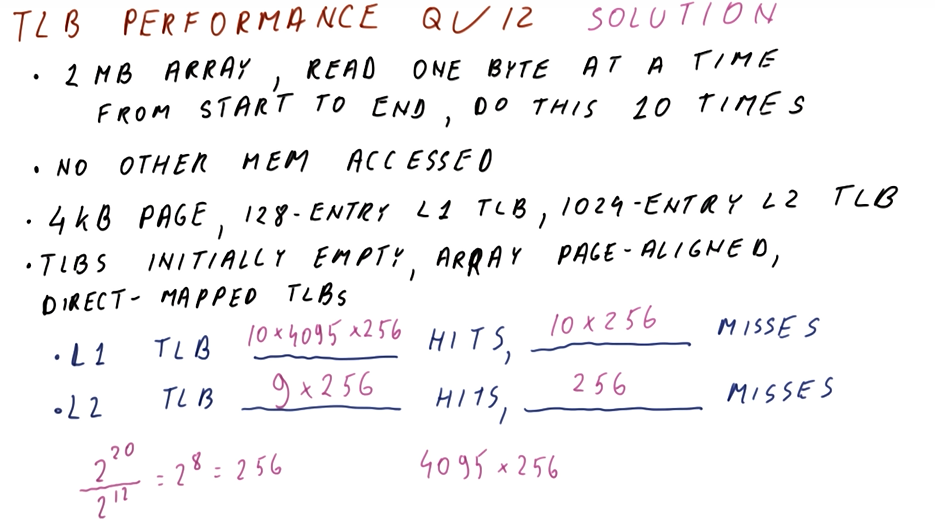 TLB PERFORMANCE QUIZ SOLUTION
· 1 MB ARRAY, READ ONE BYTE AT A TIME
FROM START TO END, DO THIS 10 TIMES
· NO OTHER MEM ACCESSED
· 4kB PAGE, 128-ENTRY L1 TLB, 1024-ENTRY L2 TLB
· TLBS INITIALLY EMPTY, ARRAY PAGE-ALIGNED,
DIRECT-MAPPED TLBs
· L1 TLB 10×4095×256 HITS, 10×256 MISSES
· L2 TLB 9×256 HITS, 256 MISSES
2^20/2^12 = 2^8 = 256 4095×256